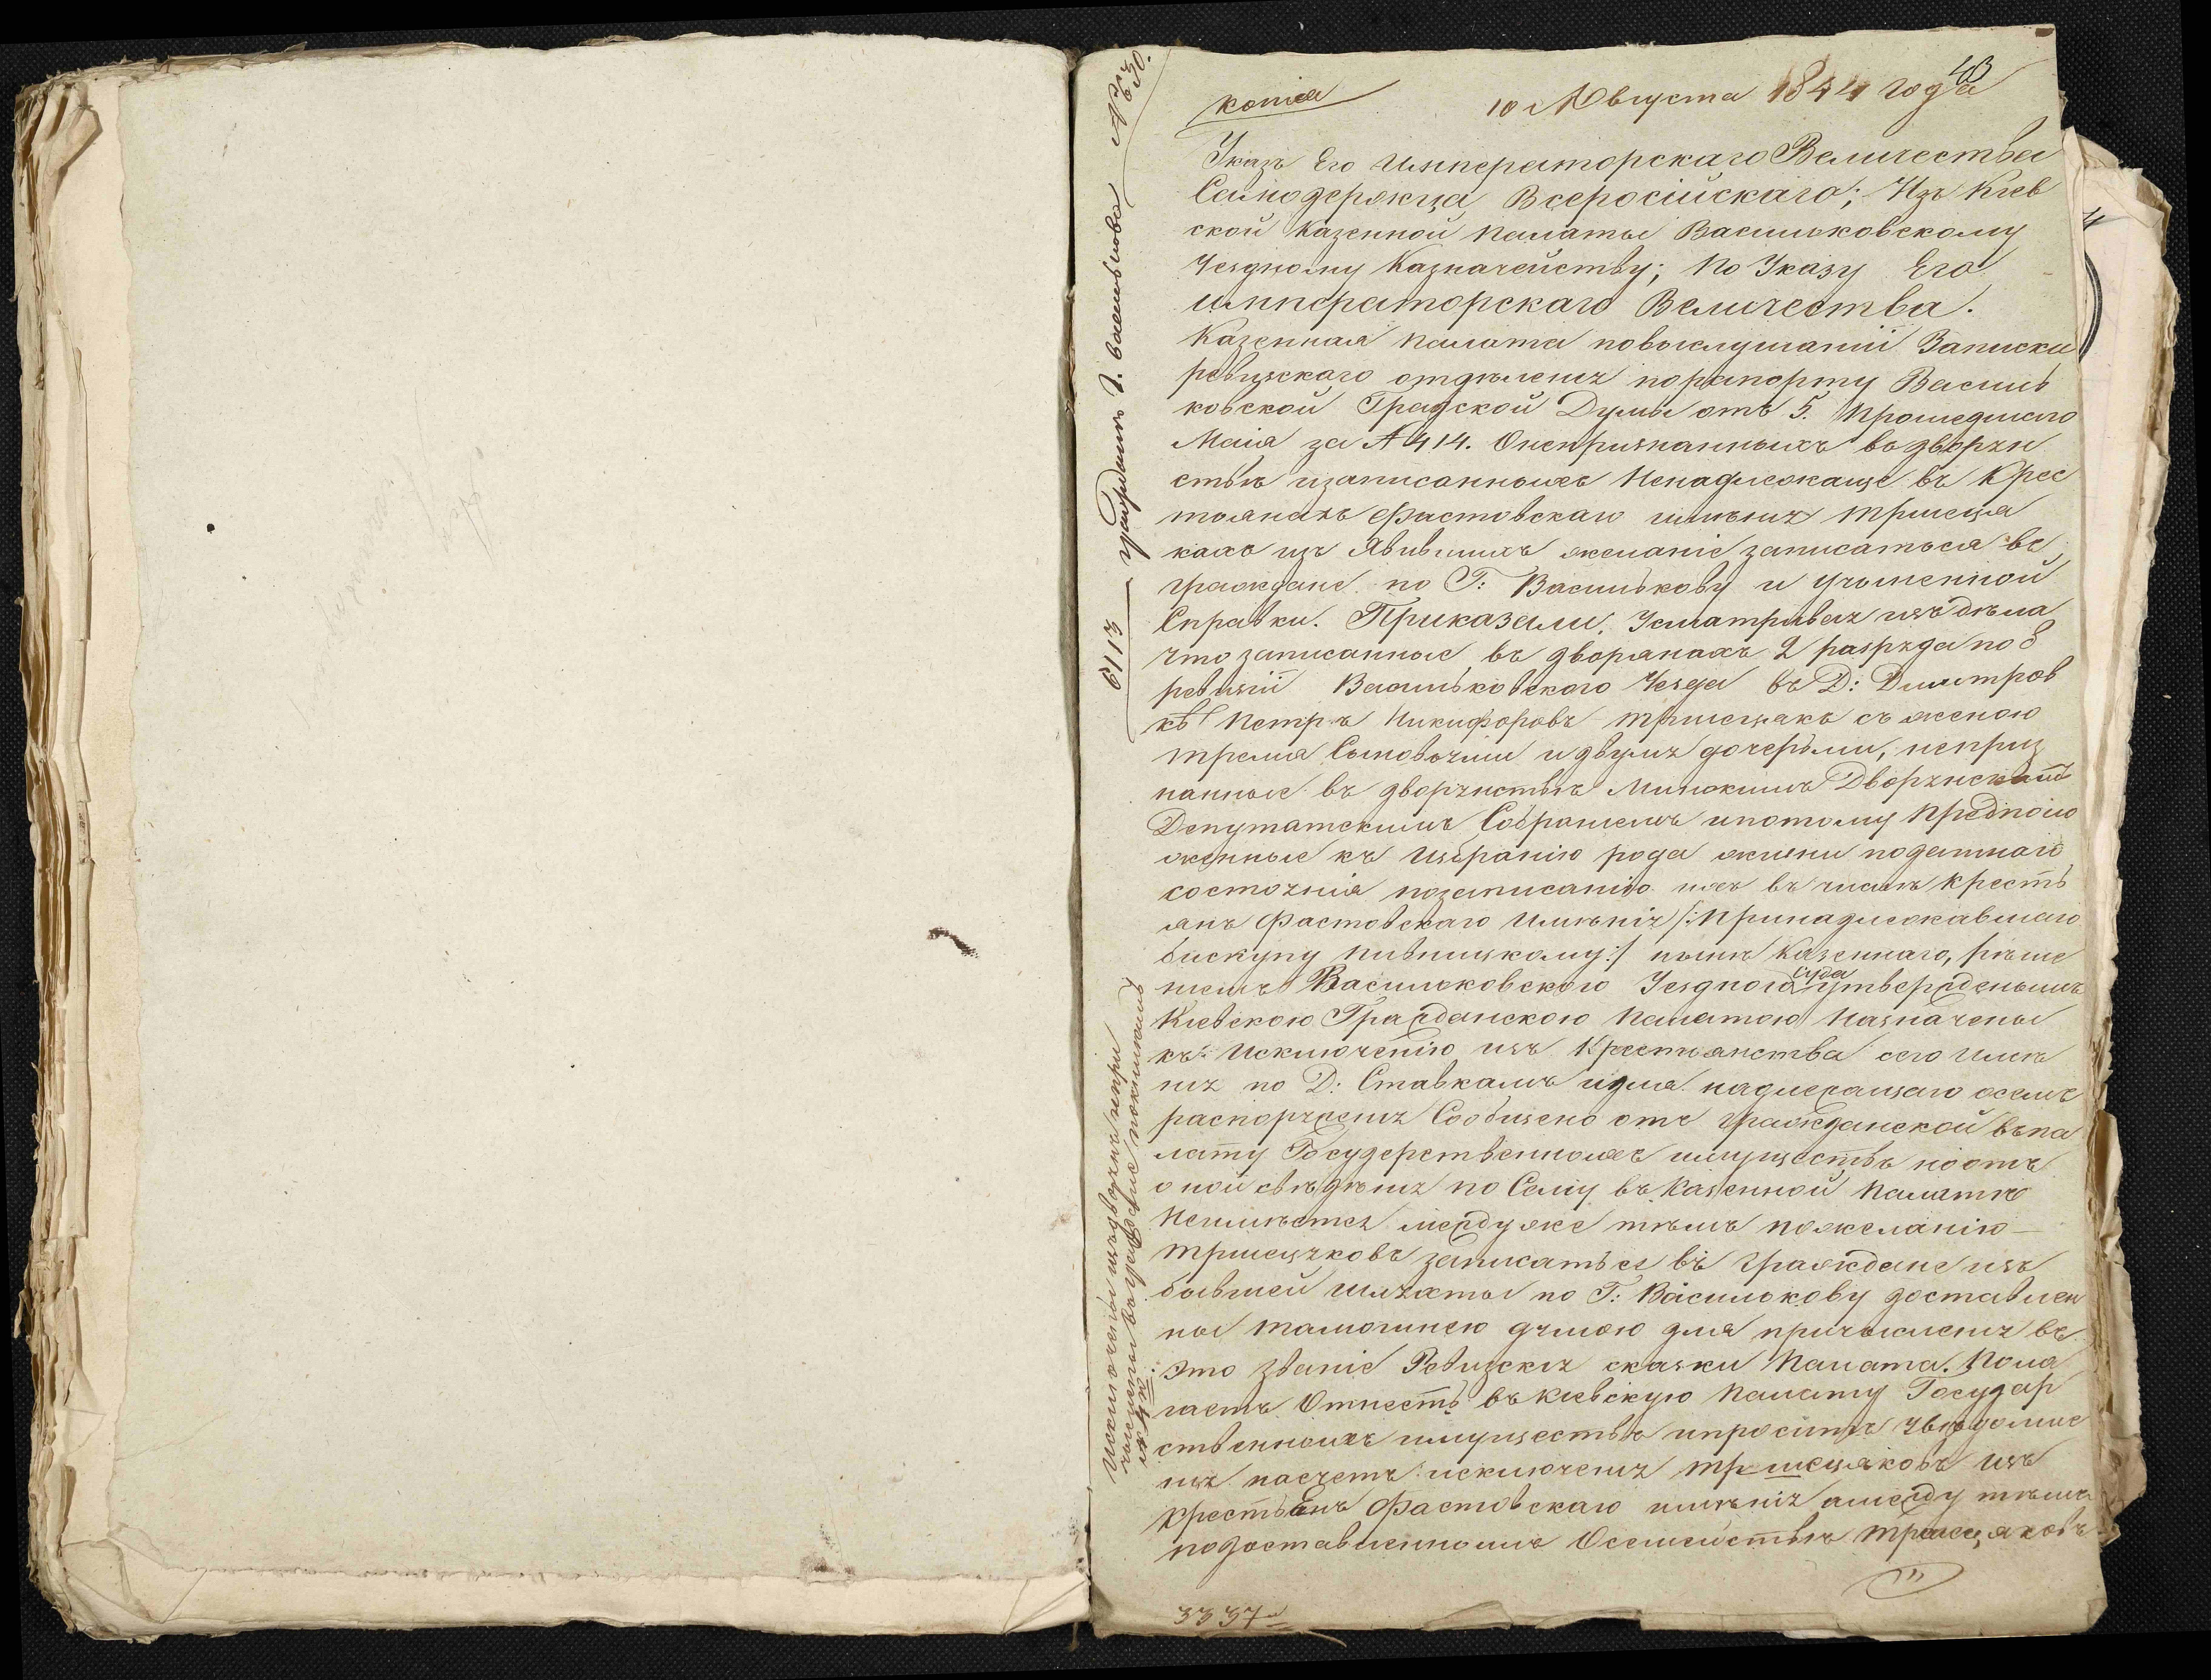 копия
10 Августа 1844 года
43
Указъ Его Императорскаго Величества
Самодержца Всеросійскаго; Изъ Кіев
ской Казенной Палаты Васильковскому
Уездному Казначейству; По Указу Его
Императорскаго Величества.
Казенная Палата повыслушаніи Записки
ревизскаго отделения порапорту Василь
ковской Градской Думы отъ 5. Прошедшаго
Маія за № 414. Онепризнанныхъ въ дворян
стве изаписанныхъ Ненадлежаще въ Крес
тьянахъ Фастовскаго имения Тришеця
кахъ изъ Явившихъ желаніе записаться въ
граждане по Г: Василькову и учиненной
Справки. Приказали. Усматривая изъ дѣла
что записанные въ дворянахъ 2 разряда по 8
ревизіи Васильковскаго Уезда въ Д: Дмитров
кѣ Петръ Никифоровъ Тришецякъ съ женою
тремя Сыновями и двумя дочерьми, неприз
нанные въ дворянстве Минскимъ Дворянскимъ
Депутатскимъ Собраніемъ ипотому предполо
женные къ избранію рода жизни податнаго
состоянія позаписанію ихъ въ числѣ Кресть
янъ Фастовскаго Имѣнія /: Принадлежавшаго
бискупу Пивницкому :/ нынѣ Казеннаго, рѣше
ніемъ Васильковскаго Уезднаго Суда утвержденнымъ
Кіевскою Гражданскою Палатою Назначены
къ Исключенію изъ Крестьянства сего имѣ
нія по Д: Ставкамъ идля надлежащаго осемъ
распоряженія Сообщено отъ гражданской въ па
лату Государственныхъ имуществъ ноотъ
оной свѣдѣнія по Сему въ Казенной Палатѣ
Неимѣется между же тѣмъ пожеланію
Тришецяковъ записаться въ граждане изъ
бывшей Шляхты по Г: Василькову доставлен
ны тамошнею думою для причисленія въ
это званіе Ревизскія сказки Палата. Пола
гаетъ Отнесть въ Кіевскую Палату Государ
ственныхъ имуществъ ипросить уведомле
нія насчетъ исключенія Тришецяковъ изъ
Крестьянъ Фастовскаго имѣнія а между тѣмъ
подоставленнымъ Осемействѣ Тришецяковъ
3337
6113
гражданъ г. Василькова
№ 630.
Исключены изъ дворянъ непри